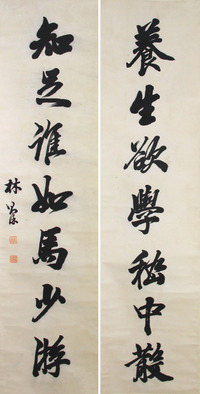 養生欲學嵇中散
知足誰如馬少游
林